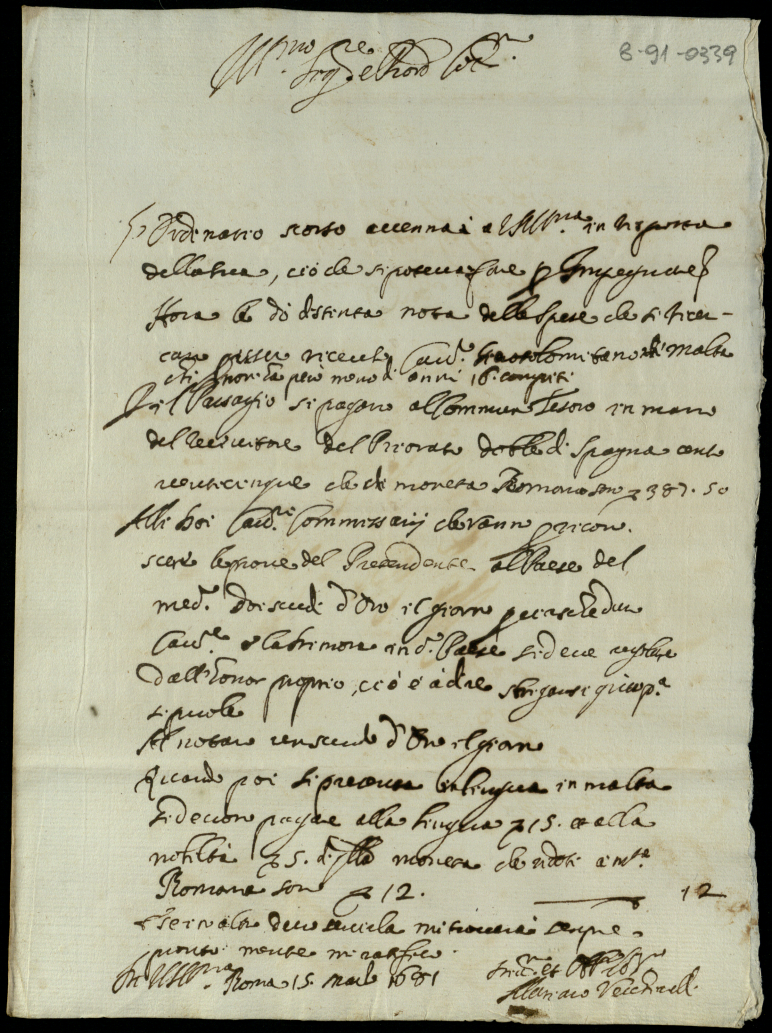 Ill.mo Sig.re e Pron Col.mo
B-91-0339
Ordinario scorso accennai a VS Ill.ma in risposta
della sua, ciò che si poteva fare p
Hora le dò distinta nota delle spese che si ricer-
cano esser ricevuto Cav.re Gerosolimitano di Malta
però meno di anni 16. compiti
Pil Passagio si pagano al Commun Tesoro in mano
del Ricevitore del Priorato doble di Spagna cento
venticinque che di moneta Romana sono 387.50
Alli doi Cav.ri Commissarij che vanno p ricon.
scere le prove del Pretendente al Paese del
med.o doi scudi d'Oro il giorno p ciascheduno
Cav.re e la dimora in d.o Paese si deve regolare
dall'honor proprio, ciò è à dire
si puole
Al notaro uno scudo d'Oro il giorno
Quando poi si presenta in lingua in Malta
si devono pagare alla lingua 15. et alla
nobiltà 5. di quella moneta che ridotti a m.ta
Romana sono 12. 12
e se in altro devo servirla mi troverà sempre
pronto mentre mi ratifico
Di VS Ill.ma Roma 15. Marzo 1681
Mariano Vecchiarelli